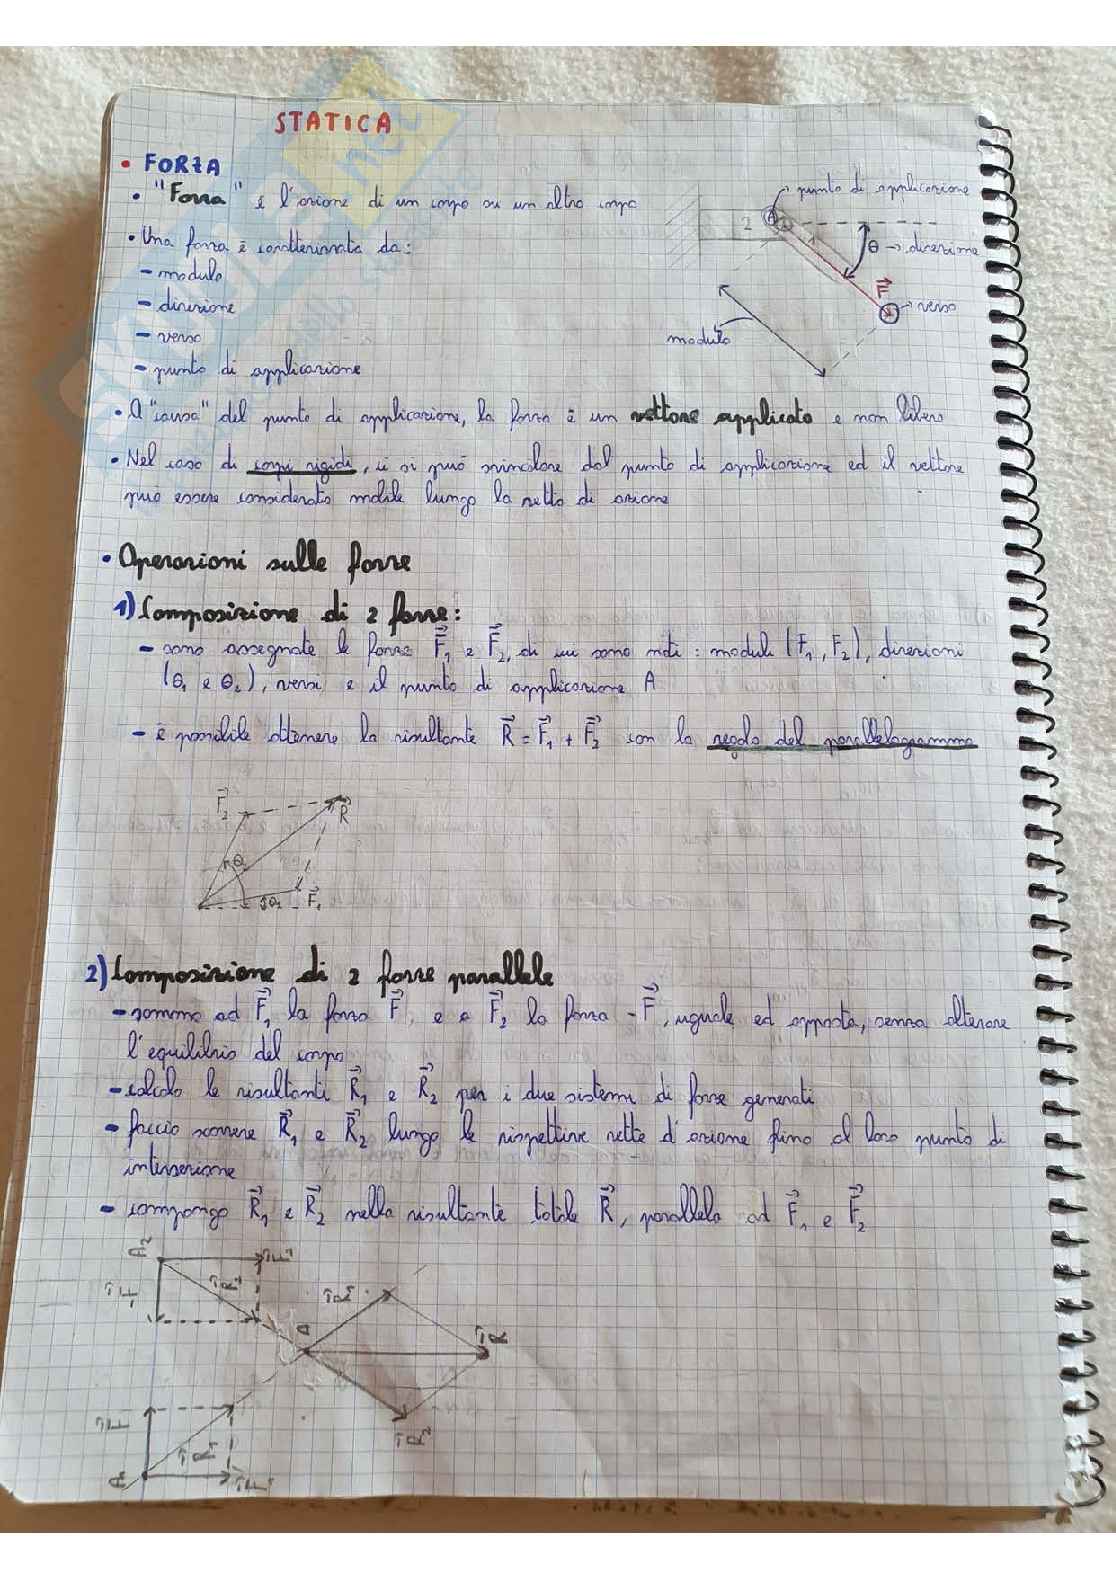 STATICA
• FORZA
• "Forza" è l'azione di un corpo su un altro corpo
• Una forza è caratterizzata da:
- modulo
- direzione
- verso
- punto di applicazione
punto di applicazione
A
2
1
θ → direzione
F⃗
→ verso
modulo
• A "causa" del punto di applicazione, la forza è un vettore applicato e non libero
• Nel caso di corpi rigidi, ci si può svincolare dal punto di applicazione ed il vettore
può essere considerato mobile lungo la retta di azione
• Operazioni sulle forze
1) Composizione di 2 forze:
- sono assegnate le forze F⃗₁ e F⃗₂, di cui sono noti: moduli (F₁, F₂), direzioni
(θ₁ e θ₂), versi e il punto di applicazione A
- è possibile ottenere la risultante R⃗ = F⃗₁ + F⃗₂ con la regola del parallelogramma
F⃗₂
R⃗
θ₁
F⃗₁
2) Composizione di 2 forze parallele
- sommo ad F⃗₁ la forza F⃗, e a F⃗₂ la forza -F⃗, uguale ed opposta, senza alterare
l'equilibrio del corpo
- calcolo le risultanti R⃗₁ e R⃗₂ per i due sistemi di forze generati
- faccio scorrere R⃗₁ e R⃗₂ lungo le rispettive rette d'azione fino al loro punto di
intersezione
- compongo R⃗₁ e R⃗₂ nella risultante totale R⃗, parallela ad F⃗₁ e F⃗₂
A₂
-F⃗
R⃗₂
A
R⃗₁
R⃗
R⃗₂
F⃗
R⃗₁
A₁
F⃗₁